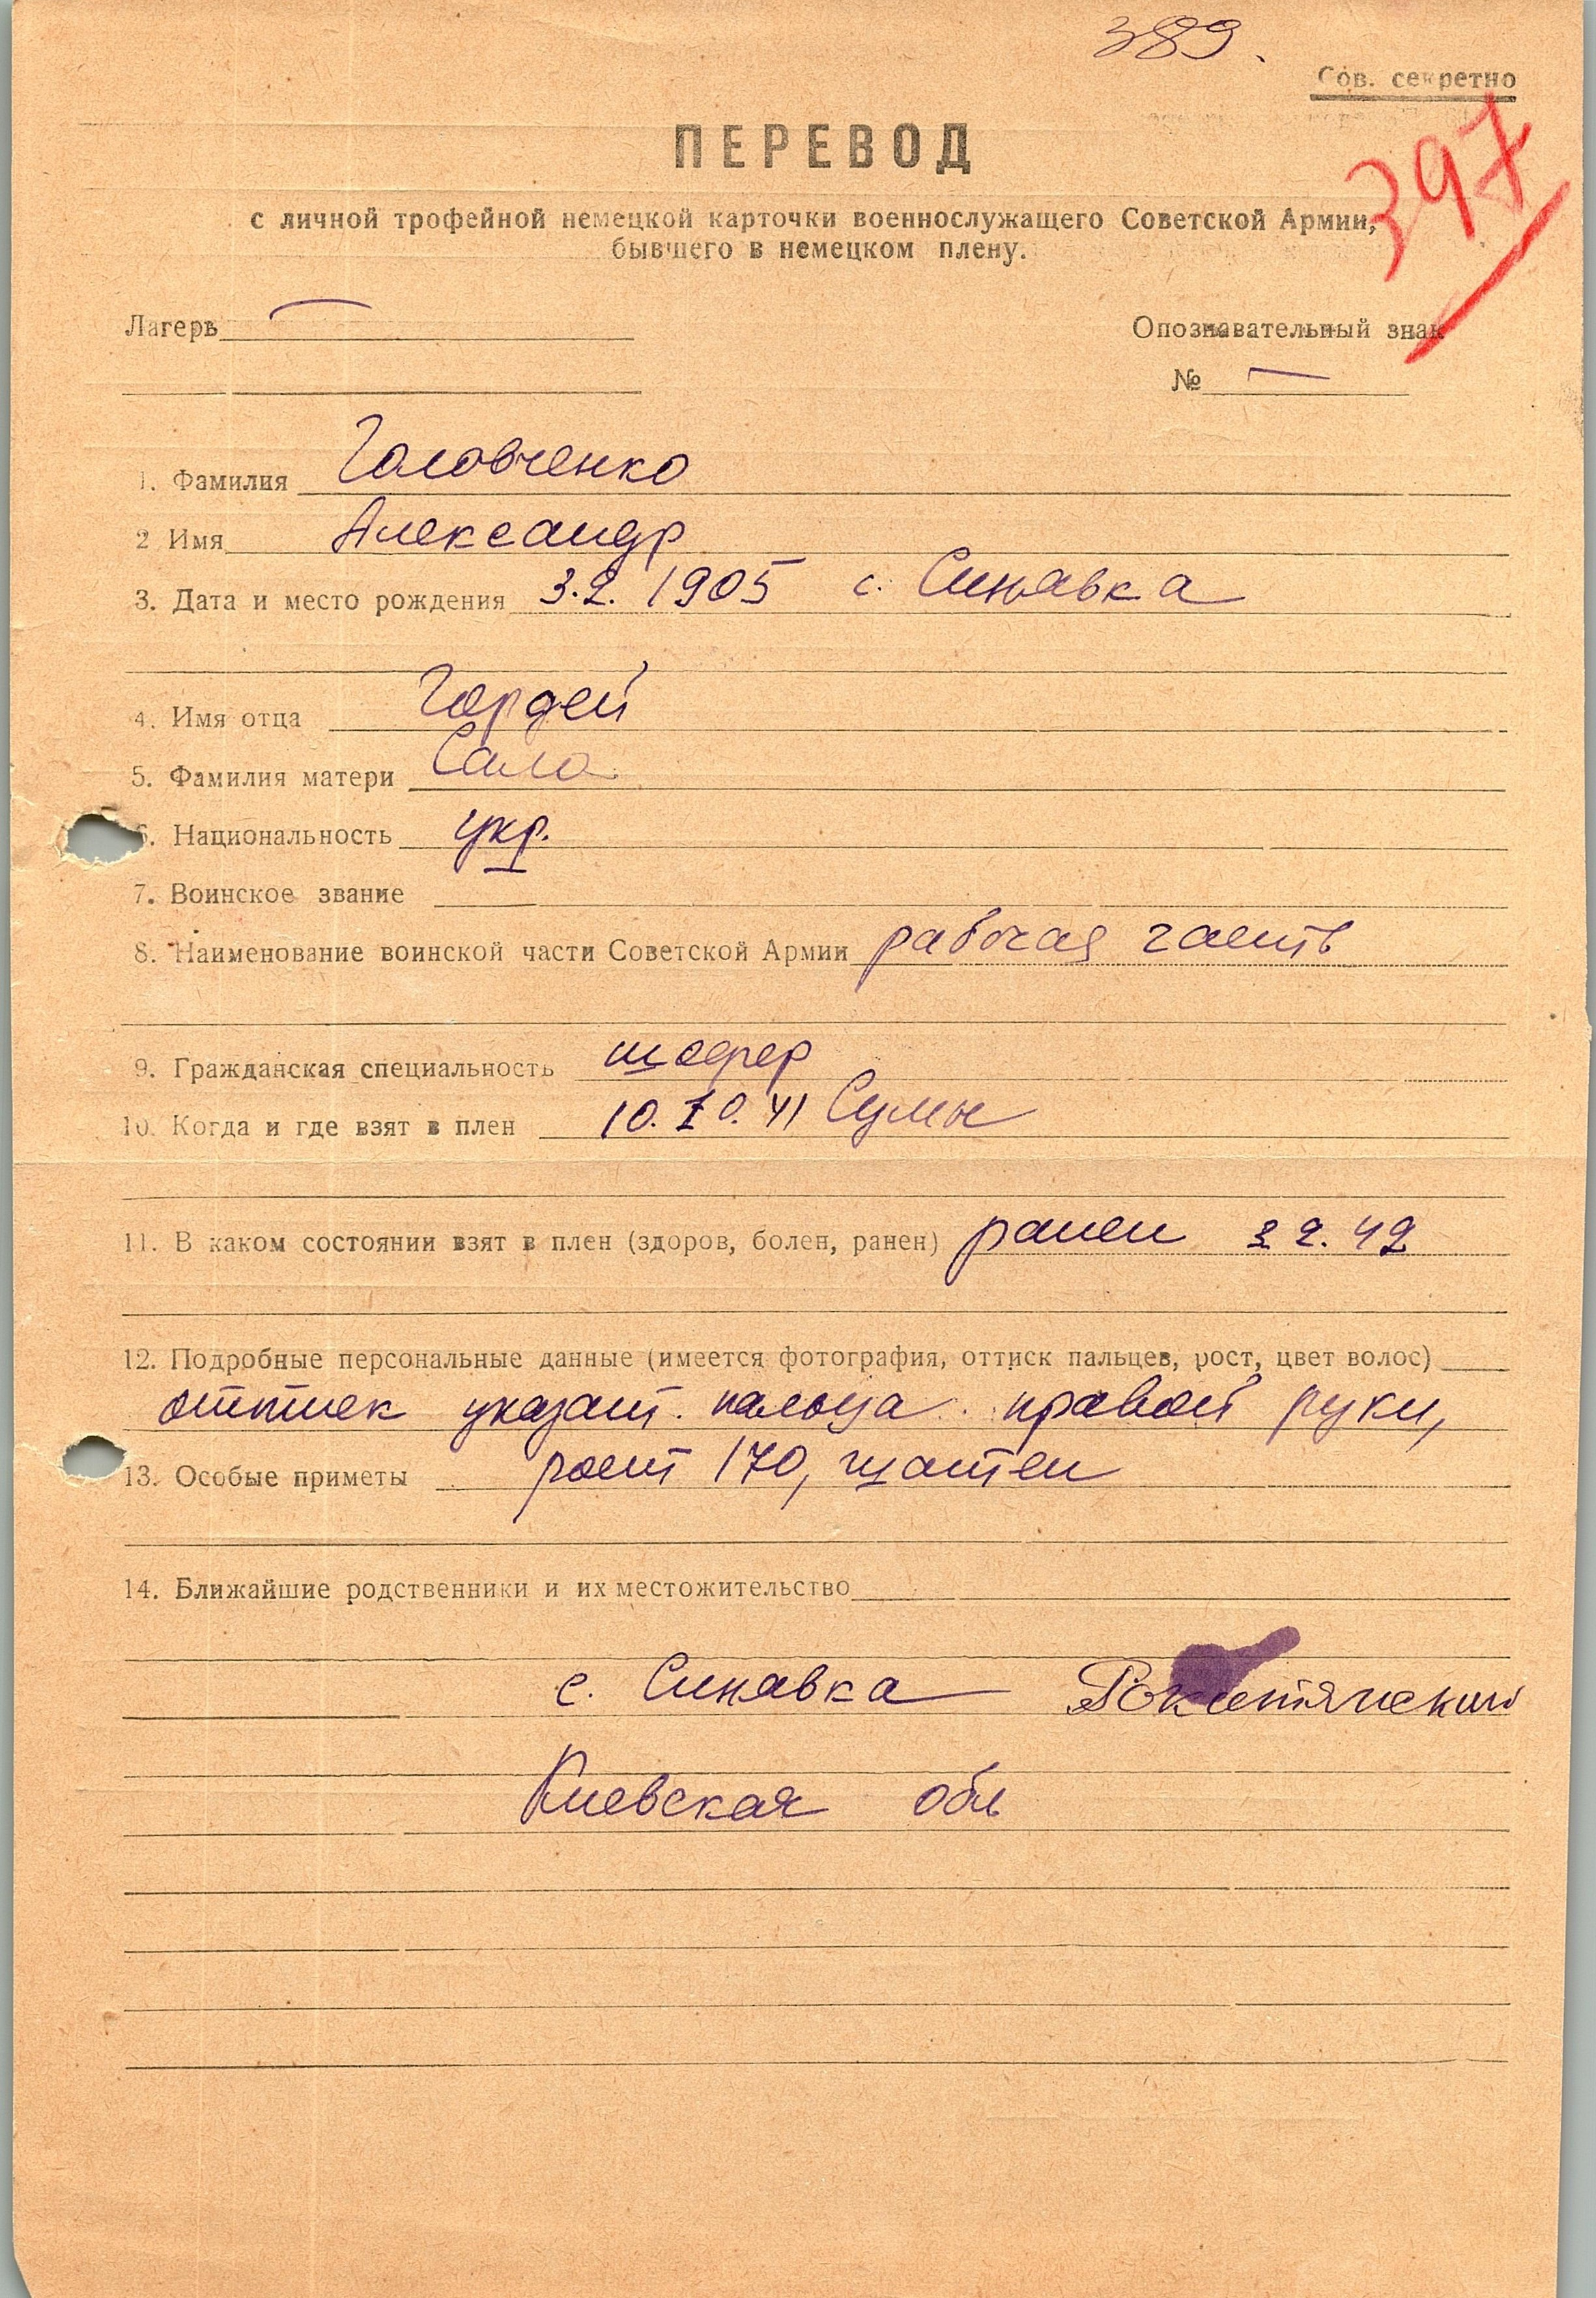 389.
Сов. секретно
397
ПЕРЕВОД
с личной трофейной немецкой карточки военнослужащего Советской Армии,
бывшего в немецком плену.
Лагерь —
Опознавательный знак
№ —
1. Фамилия Головченко
2 Имя Александр
3. Дата и место рождения 3.2. 1905 с. Синявка
4. Имя отца Гордей
5. Фамилия матери Сало
6. Национальность укр.
7. Воинское звание
8. Наименование воинской части Советской Армии рабочая часть
9. Гражданская специальность шофер
10. Когда и где взят в плен 10.10.41 Сумы
11. В каком состоянии взят в плен (здоров, болен, ранен) ранен 2 2. 42
12. Подробные персональные данные (имеется фотография, оттиск пальцев, рост, цвет волос)
оттиск указат. пальца правой руки,
13. Особые приметы рост 170, шатен
14. Ближайшие родственники и их местожительство
с. Синявка Рокитянский
Киевская обл